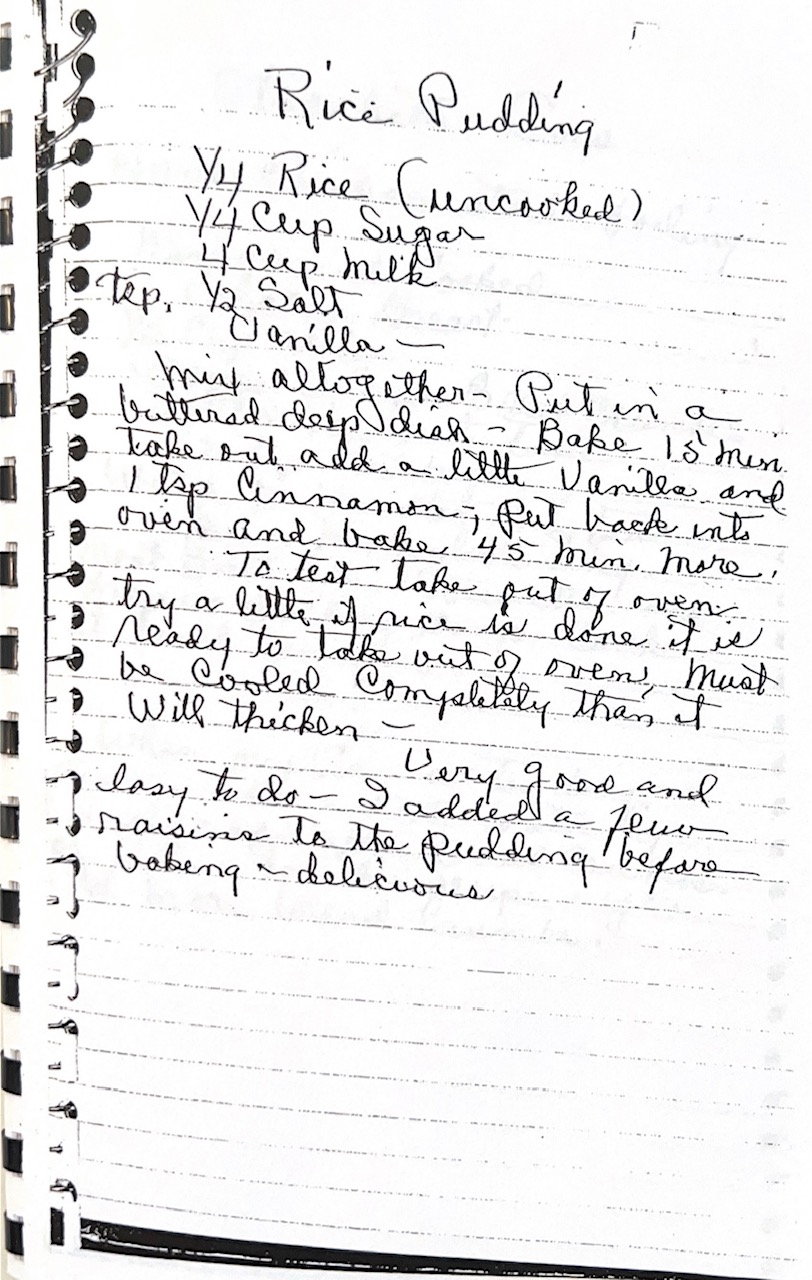 Rice Pudding
1/4 Rice (uncooked)
1/4 Cup Sugar
4 Cup Milk
tsp. 1/2 Salt
Vanilla —
Mix altogether - Put in a
buttered deep dish - Bake 15 min
take out add a little Vanilla and
1 tsp Cinnamon -, put back into
oven and bake 45 min. more.
To test take out of oven
try a little if rice is done it is
ready to take out of oven, Must
be Cooled Completely than it
Will thicken —
Very good and
easy to do — I added a few
raisins to the pudding before
baking ~ delicious